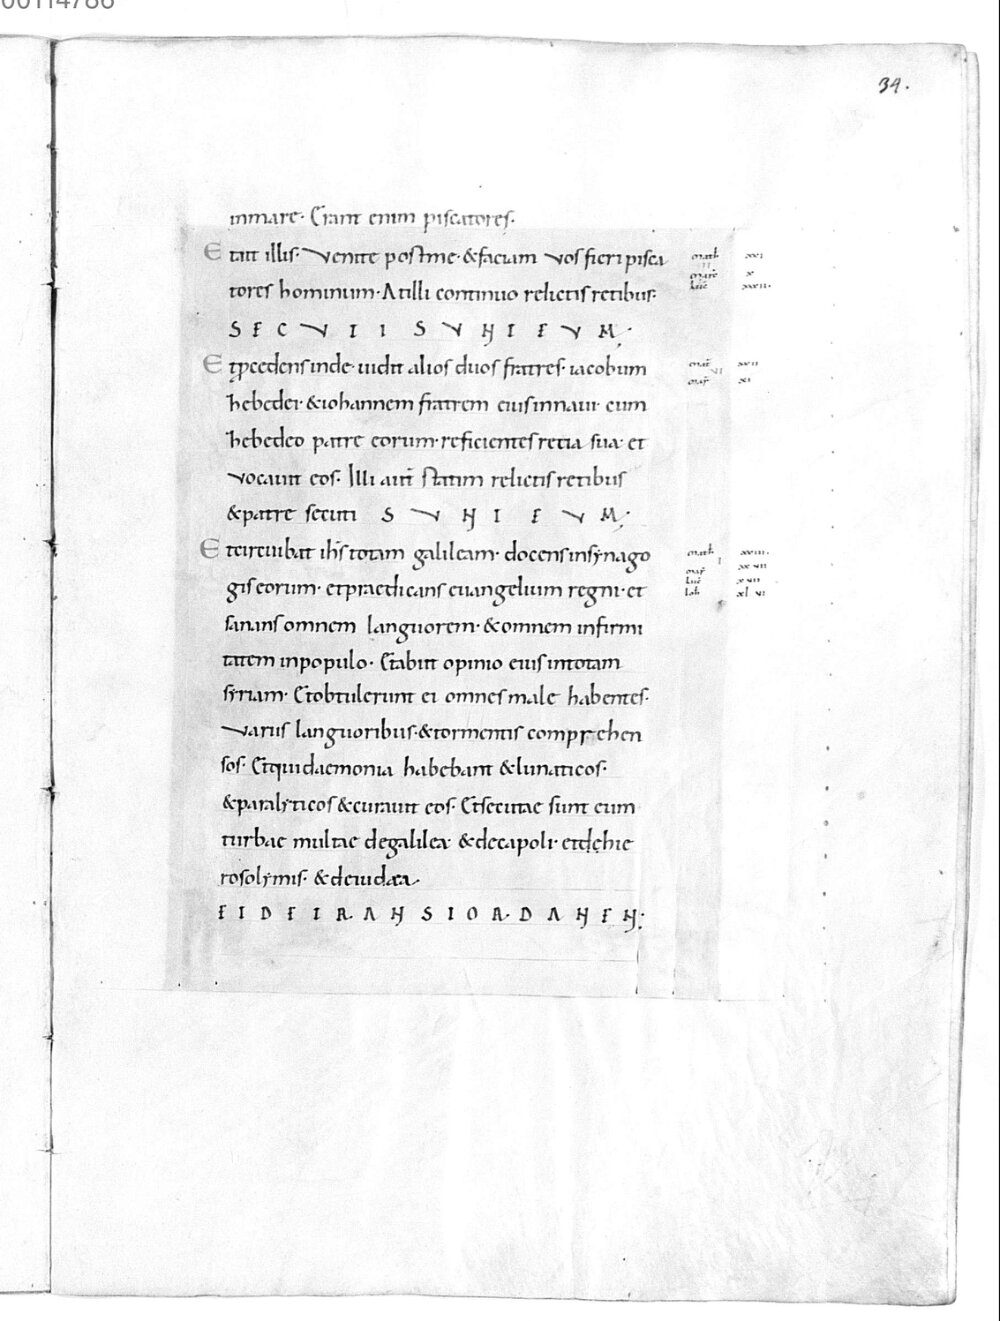 34.
inmare· Erant enim piscatores·
Et ait illis· Venite postme·&faciam vos fieri pisca
tores hominum· At illi continuo relictis retibus·
SECVTI SVNT EVM·
Et p̱cedens inde· uidit alios duos fratres· iacobum
zebedei·&iohannem fratrem eius innaui· cum
zebedeo patre eorum· reficientes retia sua· et
vocauit eos· Illi aut̄ statim relictis retibus
&patre secuti SVNT EVM·
Et circuibat ihs̄ totam galileam· docens insynago
gis eorum· et praedicans euangelium regni· et
sanans omnem languorem·&omnem infirmi
tatem inpopulo· Et abiit opinio eius intotam
syriam· Et obtulerunt ei omnes male habentes·
Variis languoribus·&tormentis comprehen
sos· Et qui daemonia habebant &lunaticos·
&paralyticos &curauit eos· Et secutae sunt eum
turbae multae degalilea &decapoli· et de hie
rosolymis· &deiudaea·
ET DE TRANS IORDANEN·